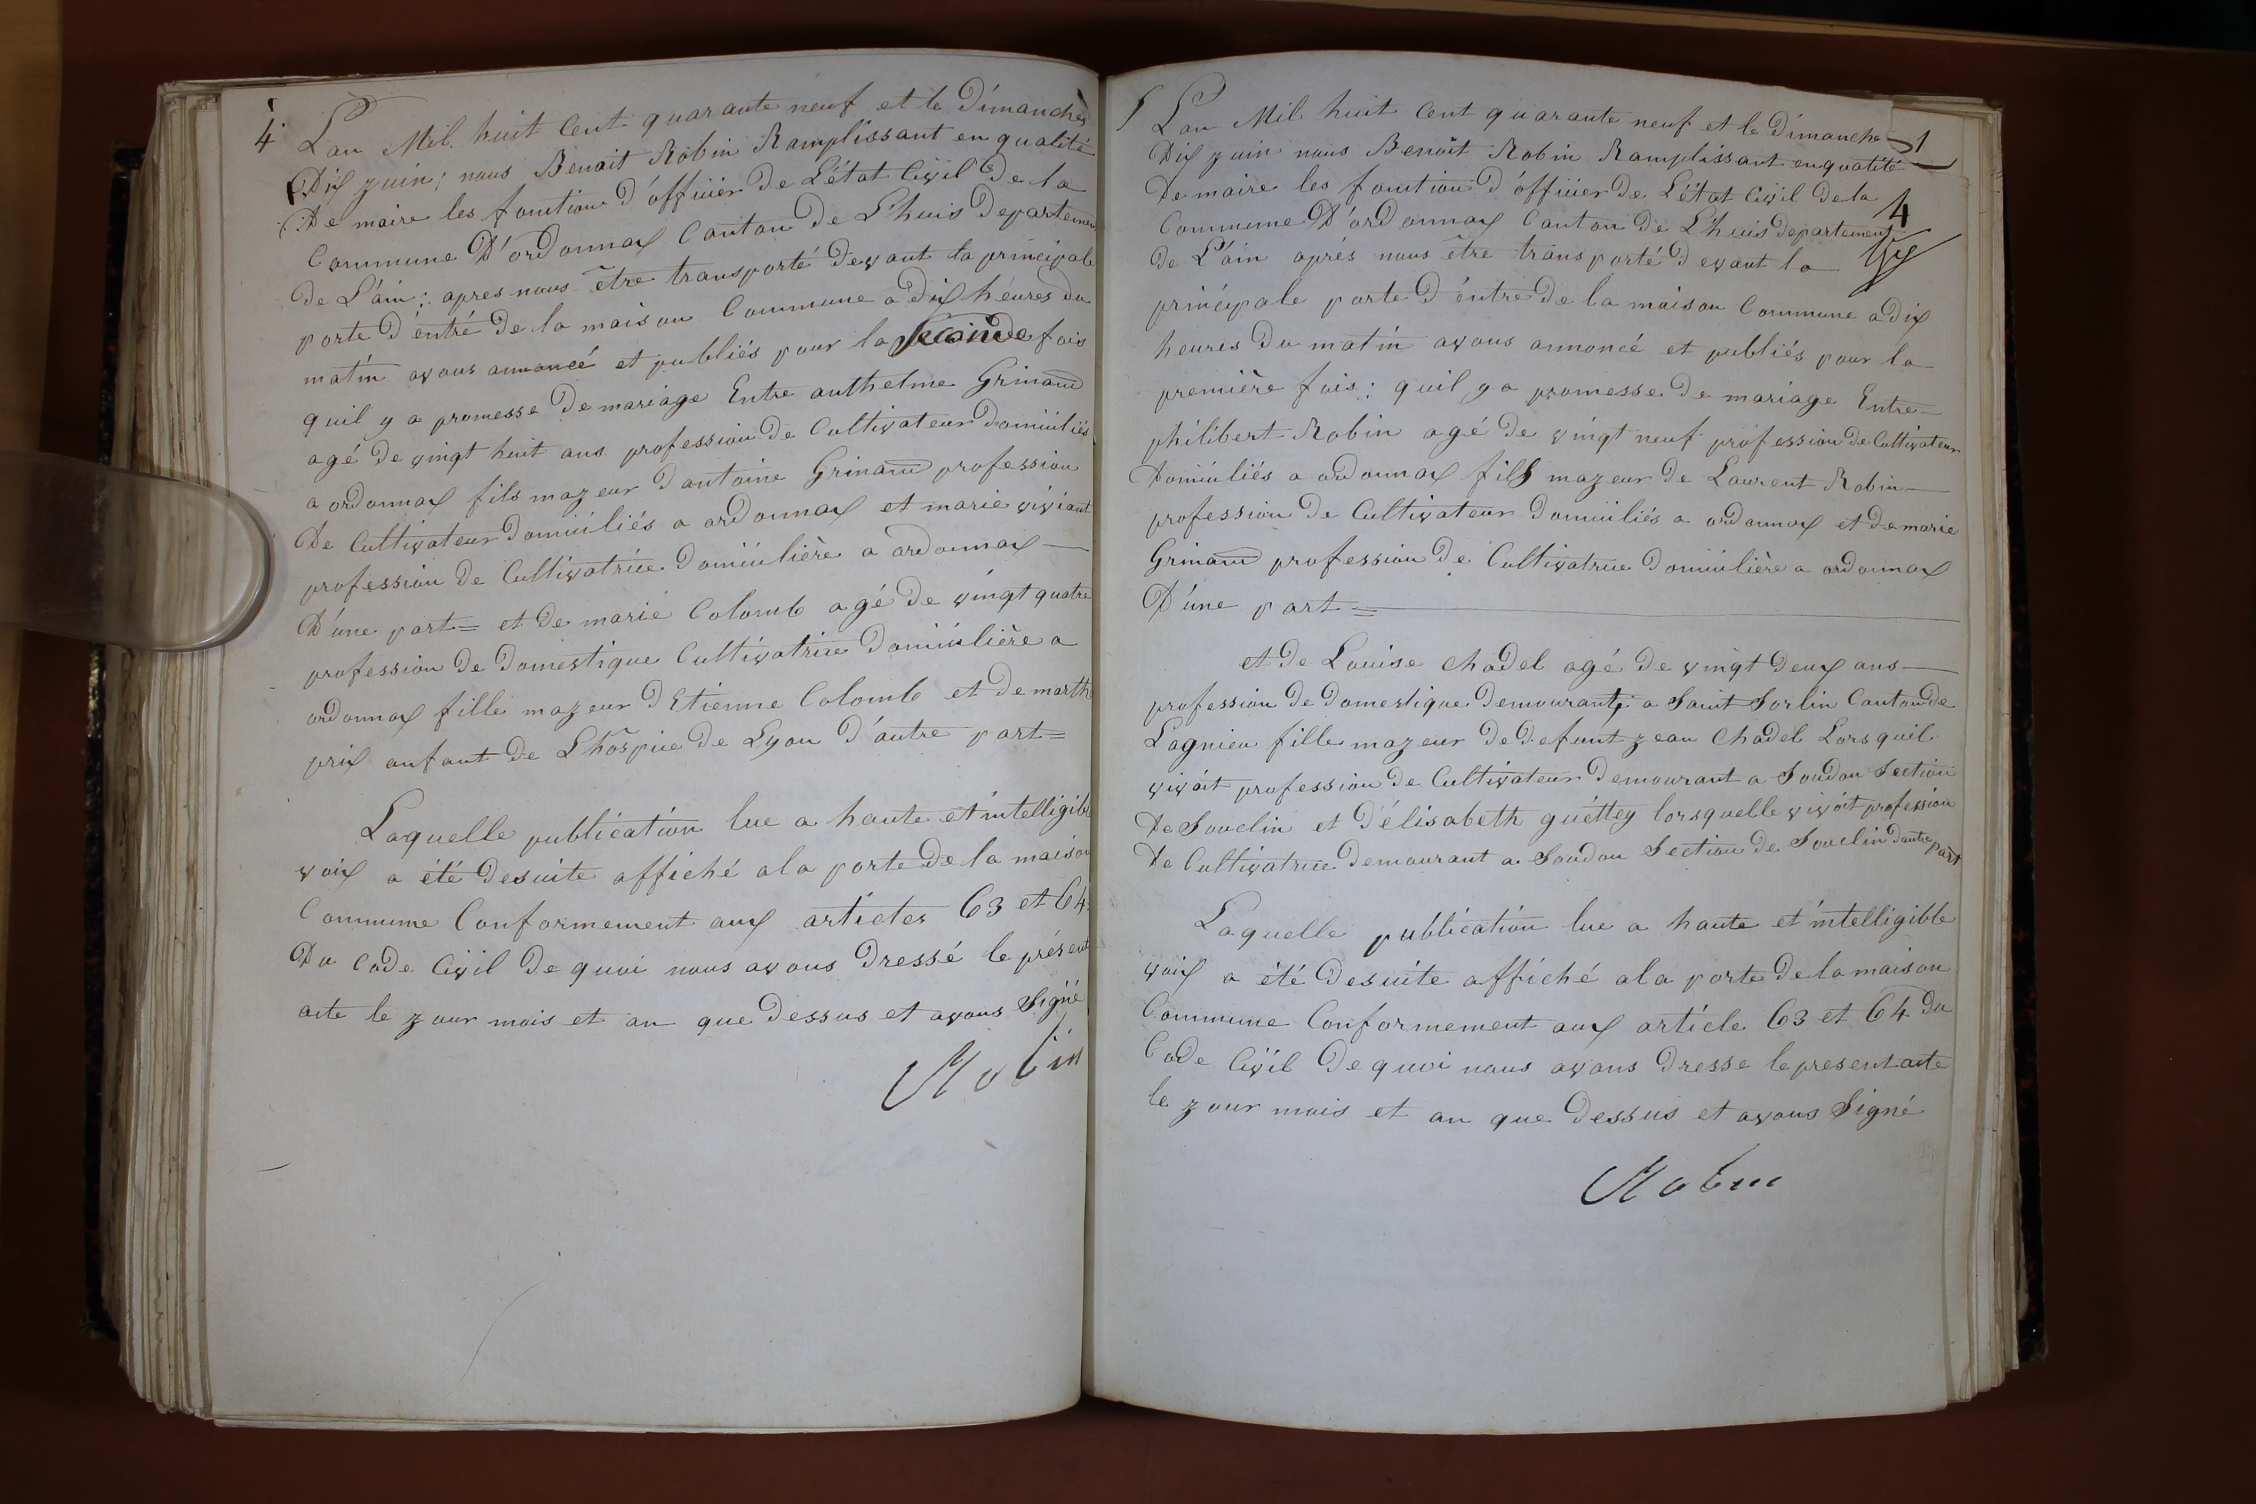 4
L'an Mil. huit Cent quarante neuf et le Dimanche
Dix juin; nous Benoit Robin Ramplissant en qualité
De maire les fonctions d'officier De L'état Civil De la
Commune D'ordonnax Canton De L'huis Departement
De L'ain; apres nous être transporté Devant la principale
porte D'entré De la maison Commune a dix heures du
matin avons annoncé et publiés pour la seconde fois
quil y a promesse De mariage Entre anthelme Grinand
agé De vingt huit ans profession De Cultivateur Domiciliés
a ordonnax fils mazeur D'antoine Grinand profession
De Cultivateur Domiciliés a ordonnax et marie viviant
profession De Cultivatrice Domicilière a ordonnax
D'une part = et De marie Colomb agé De vingt quatre
profession De Domestique Cultivatrice Domicilière a
ordonnax fille mazeur D'Etienne Colomb et De marthe
prix anfant De L'hospice De Lyon D'autre part =
Laquelle publication lue a haute et intelligible
voix a été Desuite affiché a la porte De la maison
Commune Conformement aux articles 63 et 64
Du Code Civil De quoi nous avons Dressé le présent
acte le jour mois et an que Dessus et avons Signé
Robin
5 L'an Mil huit Cent quarante neuf et le Dimanche 1
Dix juin nous Benoit Robin Ramplissant en qualité
De maire les fonction d'officier De L'état Civil De la
Commune D'ordonnax Canton De L'huis departement 4
De L'ain aprés nous être transporté Devant la
principale porte D'entré De la maison Commune a Dix
heures Du matin avons annoncé et publiés pour la
première fois: quil y a promesse De mariage Entre
philibert Robin agé De vingt neuf profession De Cultivateur
Domiciliés a ordonnax fils mazeur De Laurent Robin
profession De Cultivateur Domiciliés a ordonnax et De marie
Grinand profession De Cultivatrice Domicilière a ordonnax
D'une part =
et De Louise Chadel agé De vingt Deux ans
profession De Domestique Demourant a Saint Sorlin Canton De
Lagnieu fille mazeur De Defunt jean Chadel Lorsquil
vivoit profession De Cultivateur Demourant a Soudon Section
De Souclin et D'élisabeth guettey lorsquelle vivoit profession
De Cultivatrice Demourant a Soudon Section De Souclin Dautre part
Laquelle publication lue a haute et intelligible
voix a été Desuite affiché a la porte De la maison
Commune Conformement aux article 63 et 64 Du
Code Civil De quoi nous avons Dresse le present acte
le jour mois et an que Dessus et avons Signé
Robin